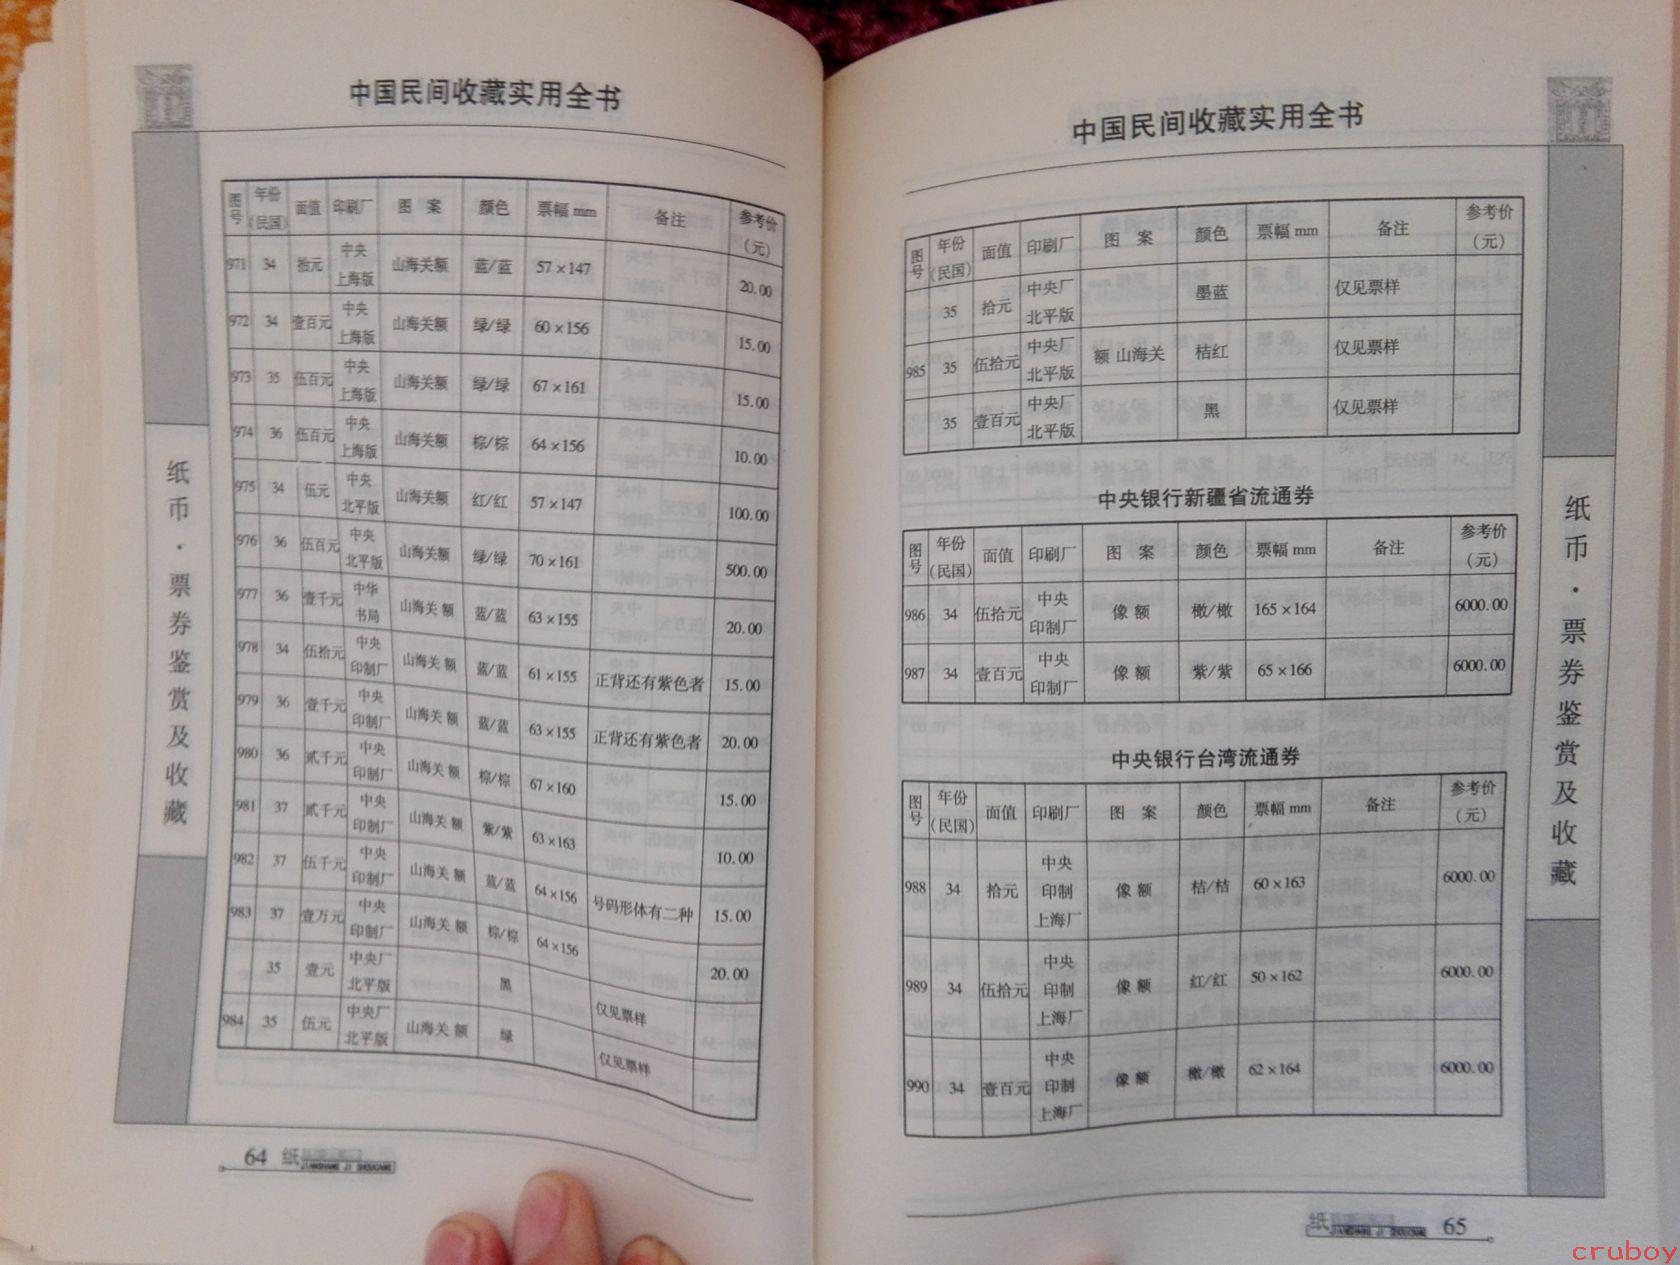 中国民间收藏实用全书
图号 年份(民国) 面值 印刷厂 图 案 颜色 票幅 mm 备注 参考价(元)
971 34 拾元 中央上海版 山海关额 蓝/蓝 57×147 20.00
972 34 壹百元 中央上海版 山海关额 绿/绿 60×156 15.00
973 35 伍百元 中央上海版 山海关额 绿/绿 67×161 15.00
974 36 伍百元 中央上海版 山海关额 棕/棕 64×156 10.00
975 34 伍元 中央北平版 山海关额 红/红 57×147 100.00
976 36 伍百元 中央北平版 山海关额 绿/绿 70×161 500.00
977 36 壹千元 中华书局 山海关 额 蓝/蓝 63×155 20.00
978 34 伍拾元 中央印制厂 山海关 额 蓝/蓝 61×155 正背还有紫色者 15.00
979 36 壹千元 中央印制厂 山海关 额 蓝/蓝 63×155 正背还有紫色者 20.00
980 36 贰千元 中央印制厂 山海关 额 棕/棕 67×160 15.00
981 37 贰千元 中央印制厂 山海关 额 紫/紫 63×163 10.00
982 37 伍千元 中央印制厂 山海关 额 蓝/蓝 64×156 号码形体有二种 15.00
983 37 壹万元 中央印制厂 山海关 额 棕/棕 64×156 20.00
35 壹元 中央厂北平版 黑 仅见票样
984 35 伍元 中央厂北平版 山海关 额 绿 仅见票样
纸币·票券鉴赏及收藏
64 纸
JIANSHANG JI SHOUCANG
中国民间收藏实用全书
图号 年份(民国) 面值 印刷厂 图 案 颜色 票幅 mm 备注 参考价(元)
35 拾元 中央厂北平版 墨蓝 仅见票样
985 35 伍拾元 中央厂北平版 额 山海关 桔红 仅见票样
35 壹百元 中央厂北平版 黑 仅见票样
中央银行新疆省流通券
图号 年份(民国) 面值 印刷厂 图 案 颜色 票幅 mm 备注 参考价(元)
986 34 伍拾元 中央印制厂 像 额 橄/橄 165×164 6000.00
987 34 壹百元 中央印制厂 像 额 紫/紫 65×166 6000.00
中央银行台湾流通券
图号 年份(民国) 面值 印刷厂 图 案 颜色 票幅 mm 备注 参考价(元)
988 34 拾元 中央印制上海厂 像 额 桔/桔 60×163 6000.00
989 34 伍拾元 中央印制上海厂 像 额 红/红 50×162 6000.00
990 34 壹百元 中央印制上海厂 像 额 橄/橄 62×164 6000.00
纸币·票券鉴赏及收藏
纸
JIANSHANG JI SHOUCANG
65
cruboy